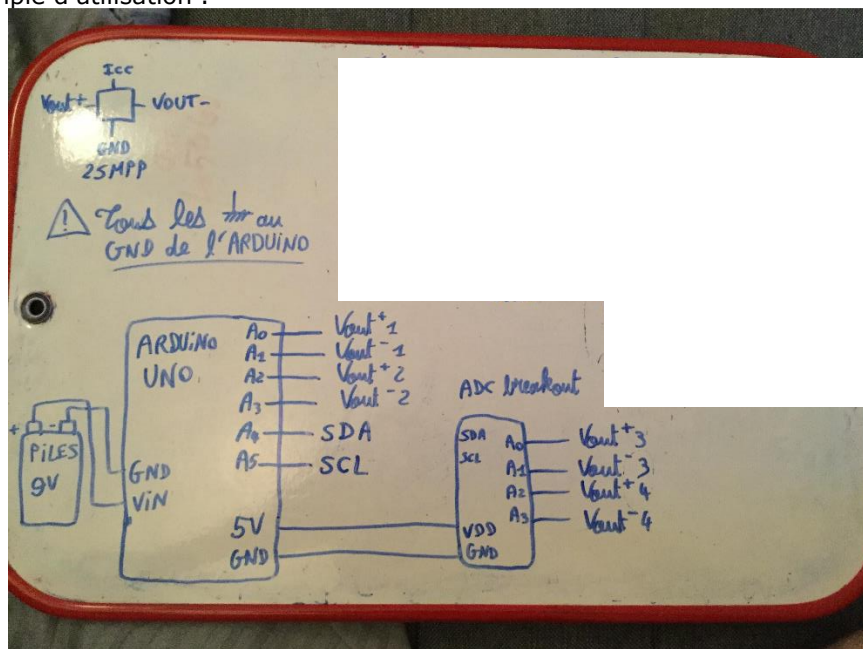 d'utilisation :
Icc
Vout+ VOUT-
GND
25MPP
! Tous les au
GND de l'ARDUiNO
ARDUiNO
UNO
A0 Vout+1
A1 Vout-1
A2 Vout+2
A3 Vout-2
A4 SDA
A5 SCL
+ -
PiLES
9V
GND
ViN
5V
GND
ADC breakout
SDA
SCL
A0 Vout+3
A1 Vout-3
A2 Vout+4
A3 Vout-4
VDD
GND